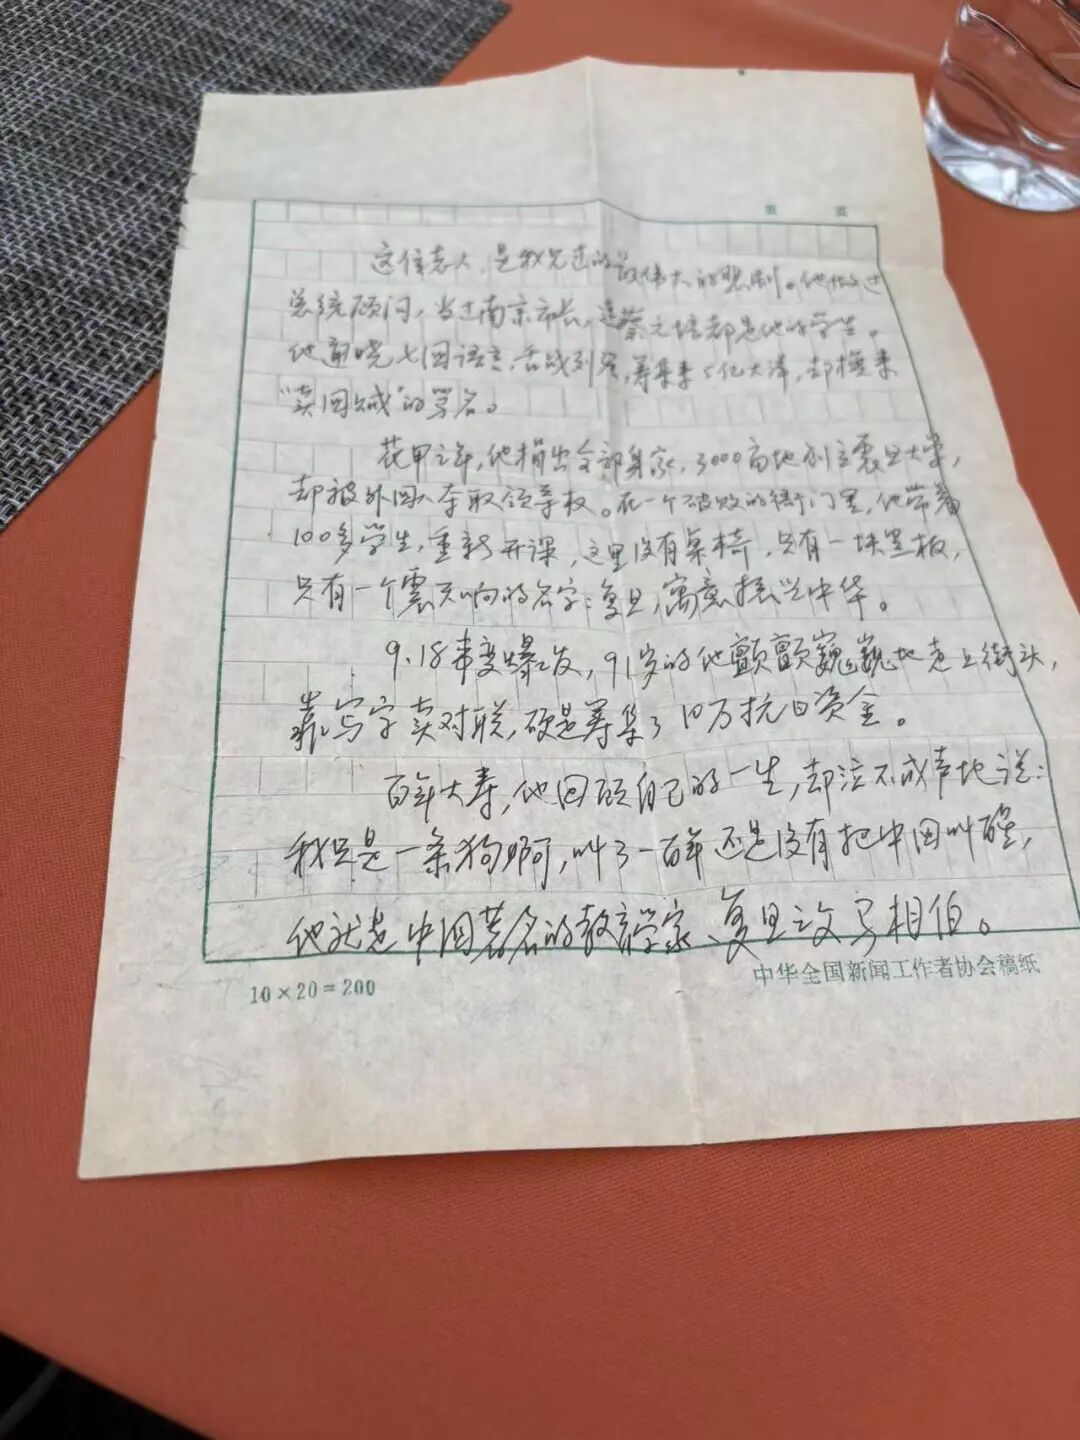 第 页
这位老人,是我见过的最伟大的悲剧。他做过
总统顾问,当过南京市长,连蔡元培都是他的学生。
他通晓七国语言,舌战列强,筹集来5亿大洋,却换来
“卖国贼”的骂名。
花甲之年,他捐出全部身家,3000亩地创立震旦大学,
却被外国人夺取领导权。在一个破败的衙门里,他带着
100多学生,重新开课,这里没有桌椅,只有一块黑板,
只有一个震天响的名字:复旦,寓意振兴中华。
9.18事变爆发,91岁的他颤颤巍巍地走上街头,
靠写字卖对联,硬是筹集了10万抗日资金。
百年大寿,他回顾自己的一生,却泣不成声地说:
我只是一条狗啊,叫了一百年还是没有把中国叫醒,
他就是中国著名的教育学家、复旦之父马相伯。
10×20=200
中华全国新闻工作者协会稿纸